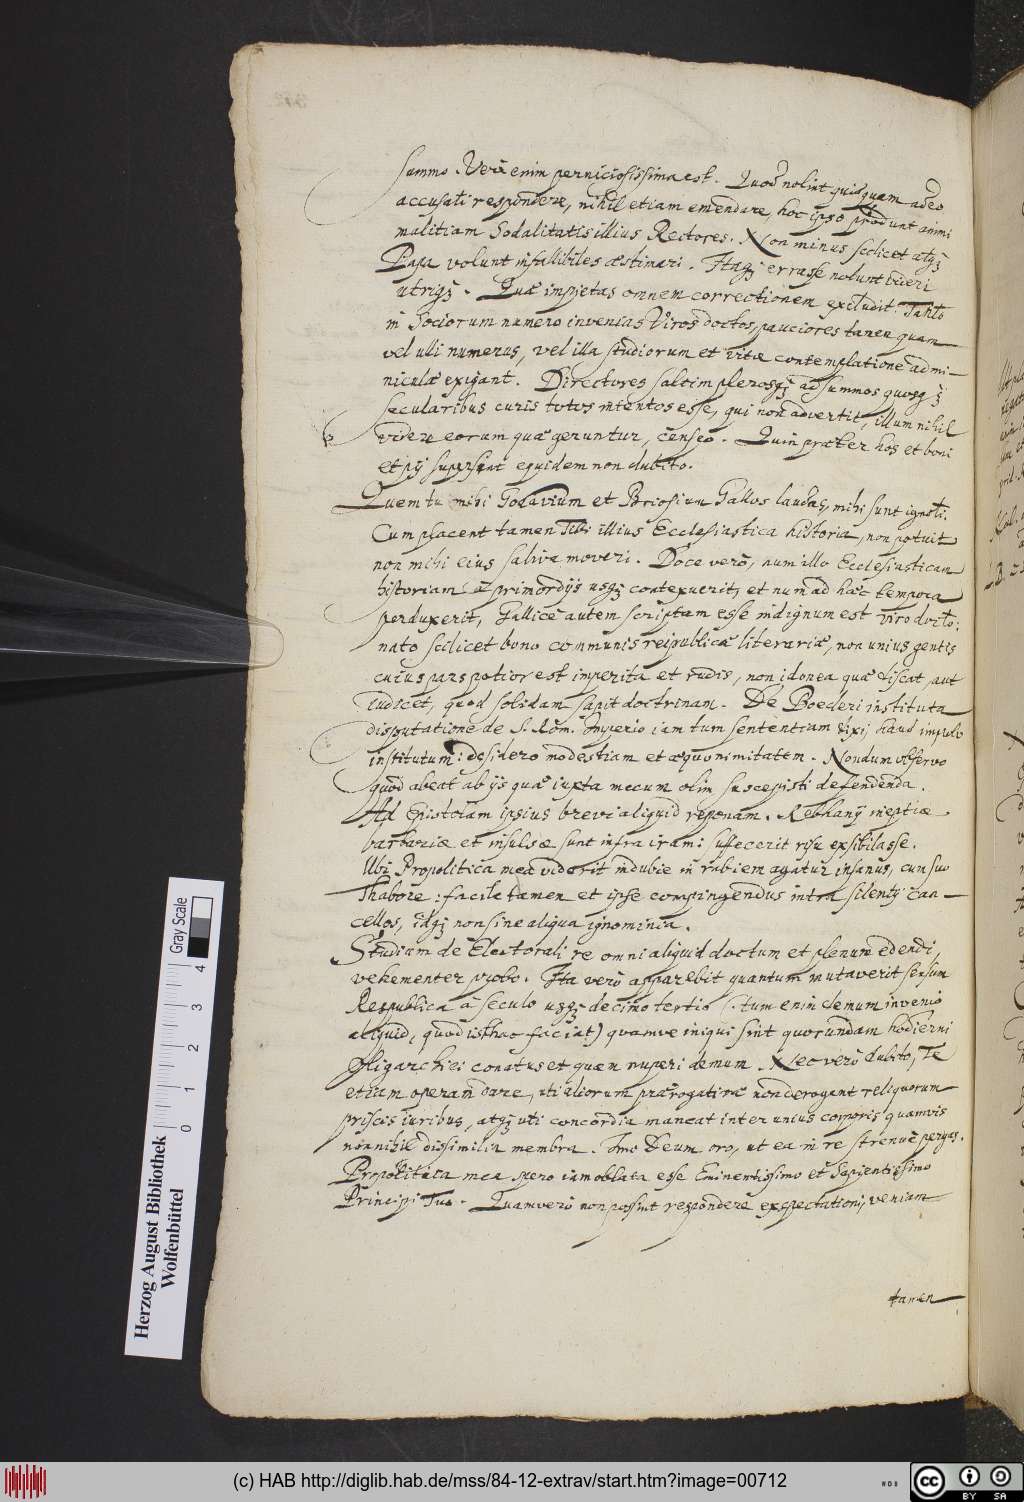 summo. Verè enim perniciosissima est. Quod nolint quisquam adeo
accusati respondere, nihil etiam emendare, hoc ipso produnt animi
malitiam Sodalitatis illius Rectores. Non minus scilicet atq;
Papa volunt infallibiles æstimari. Itaq; errasse nolunt videri
utriq;. Quæ impietas omnem correctionem excludit. Tanto
in Sociorum numero invenias Viros doctos, pauciores tamen quam
vel ulli numerus, vel illa studiorum et vitæ contemplatione admi-
niculæ exigant. Directores saltim plerosq; ad summos quosq;
secularibus curis totos intentos esse, qui non advertit, illum nihil
videre eorum quæ geruntur, censeo. Quin præter hos et boni
et pij supersint equidem non dubito.
Quem tu mihi Godavium et Briosium Gallos laudas, mihi sunt ignoti.
Cum placent tamen illius Ecclesiastica historia, non potuit
non mihi eius saliva moveri. Doce verò, num ille Ecclesiasticam
historiam à primordijs usq; contexuerit, et num ad hæc tempora
perduxerit, Gallicè autem scriptam esse indignum est viro docto:
nato scilicet bono communis reipublicæ literariæ, non unius gentis
cuius pars potior est imperita et rudis, non idonea quæ discat, aut
iudicet, quod solidam sapit doctrinam. De Boecleri instituta
disputatione de S. Rom. Imperio iam tum sententiam dixi, haud impulo
institutum: desidero modestiam et æquonimitatem. Nondum observo
quod abeat ab ijs quæ iuxta mecum olim suscepisti defendenda.
Ad Epistolam ipsius brevi aliquid reponam. Rebhanij ineptiæ
barbariæ et insulsæ sunt infra iram: suffecerit risu exsibilasse.
Ubi Propolitica mea viderit indubie in rabiem agatur insanus, cum suo
Thabore: facilè tamen et ipse compingendus intra silentij can-
cellos, idq; non sine aliqua ignominia.
Studium de Electorali re omni aliquid doctum et plenum edendi
vehementer probo. Ita verò apparebit quantum mutaverit sensum
Respublica à seculo usq; decimo tertio (tum enim demum invenio
aliquid, quod isthuc faciat) quamve iniqui sint quorundam hodierni
Oligarchici conatus et quàm nuperi demum. Nec verò dubito, Te
etiam operam dare, uti aliorum prærogativæ non derogent reliquorum
priscis iuribus, atq; uti concordia maneat inter unius corporis quamvis
nonnihil dissimilia membra. Imo Deum oro, ut ea in re strenuè pergas.
Propolitica mea spero iam oblata esse Eminentissimo et Sapientissimo
Principi Tuo. Quamvero non possint respondere exspectationi, veniam
tamen
Herzog August Bibliothek
Wolfenbüttel
0 1 2 3 4
Gray Scale
(c) HAB http://diglib.hab.de/mss/84-12-extrav/start.htm?image=00712
cc BY SA